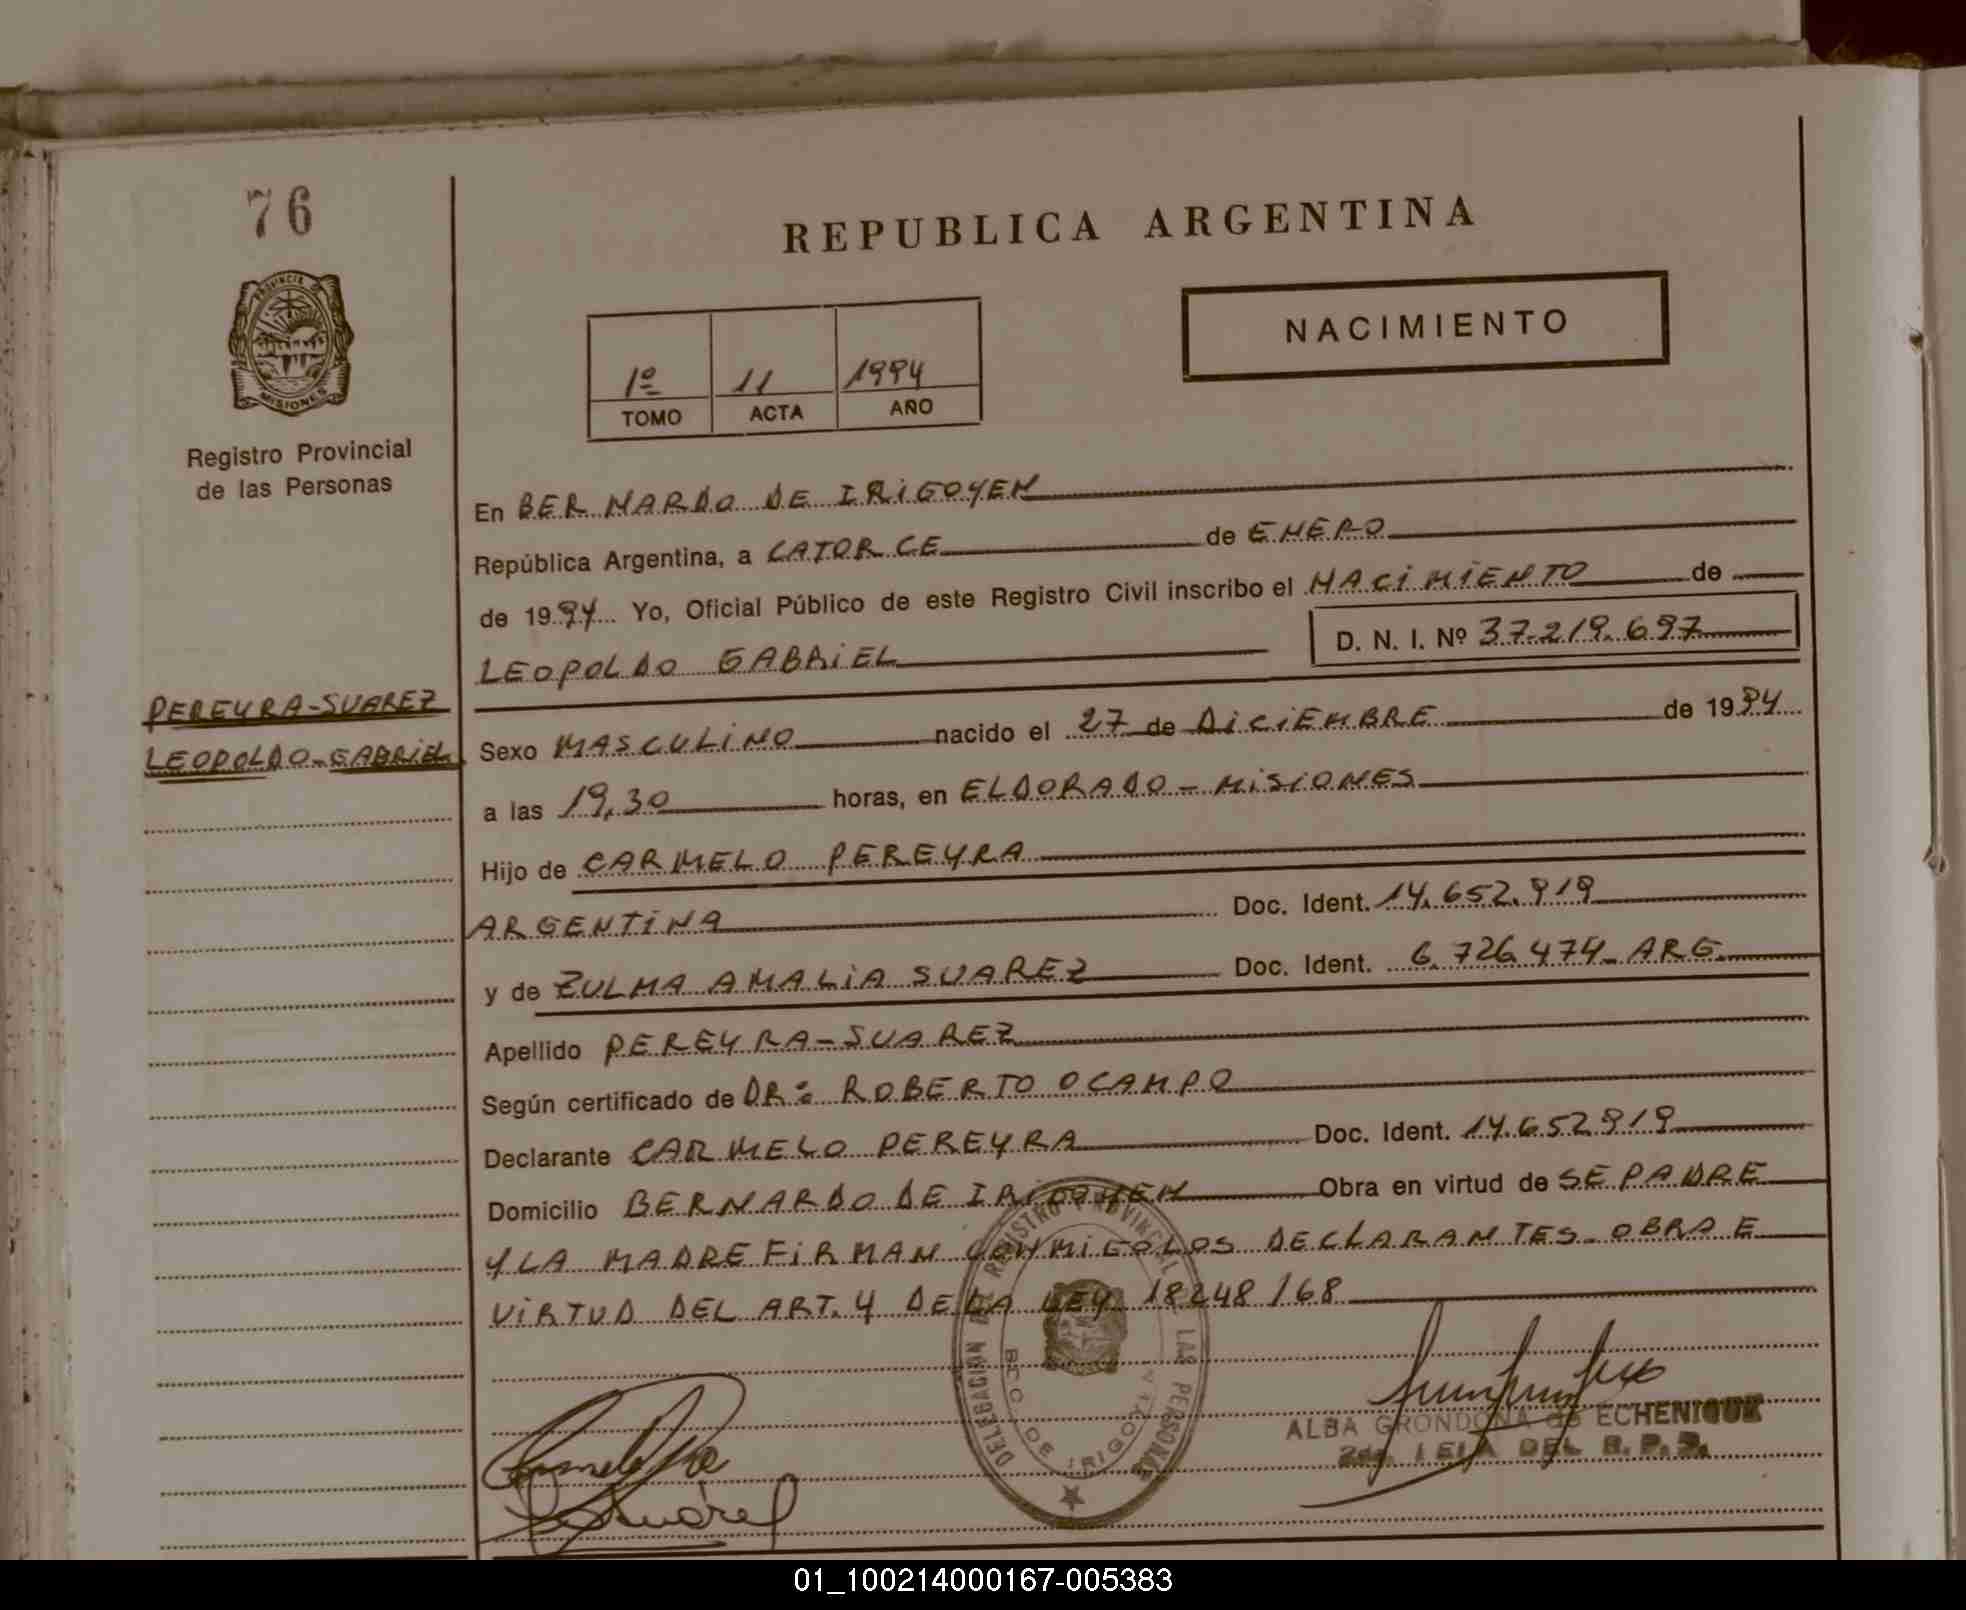 76
REPUBLICA ARGENTINA
PROVINCIA DE
MISIONES
NACIMIENTO
1º 11 1994
TOMO ACTA AÑO
Registro Provincial
de las Personas
En BERNARDO DE IRIGOYEN
República Argentina, a CATORCE de ENERO
de 1994 Yo, Oficial Público de este Registro Civil inscribo el NACIMIENTO de
LEOPOLDO GABRIEL D. N. I. Nº 37.219.697
PEREYRA-SUAREZ
LEOPOLDO-GABRIEL
Sexo MASCULINO nacido el 27 de DICIEMBRE de 1994
a las 19,30 horas, en ELDORADO - MISIONES
Hijo de CARMELO PEREYRA
ARGENTINA Doc. Ident. 14.652.919
y de ZULMA AMALIA SUAREZ Doc. Ident. 6.726.474- ARG.
Apellido PEREYRA-SUAREZ
Según certificado de DR: ROBERTO OCAMPO
Declarante CARMELO PEREYRA Doc. Ident. 14.652919
Domicilio BERNARDO DE IRIGOYEN Obra en virtud de SE PADRE
Y LA MADRE FIRMAN CONMIGO LOS DECLARANTES. OBRA E
VIRTUD DEL ART. 4 DE LA LEY 18248/68
DELEGACION DE REGISTRO PROVINCIAL LAS PERSONAS
BDO DE IRIGOYEN
ALBA GRONDONA de ECHENIQUE
DEL R. P. P.
Suarez
01_100214000167-005383